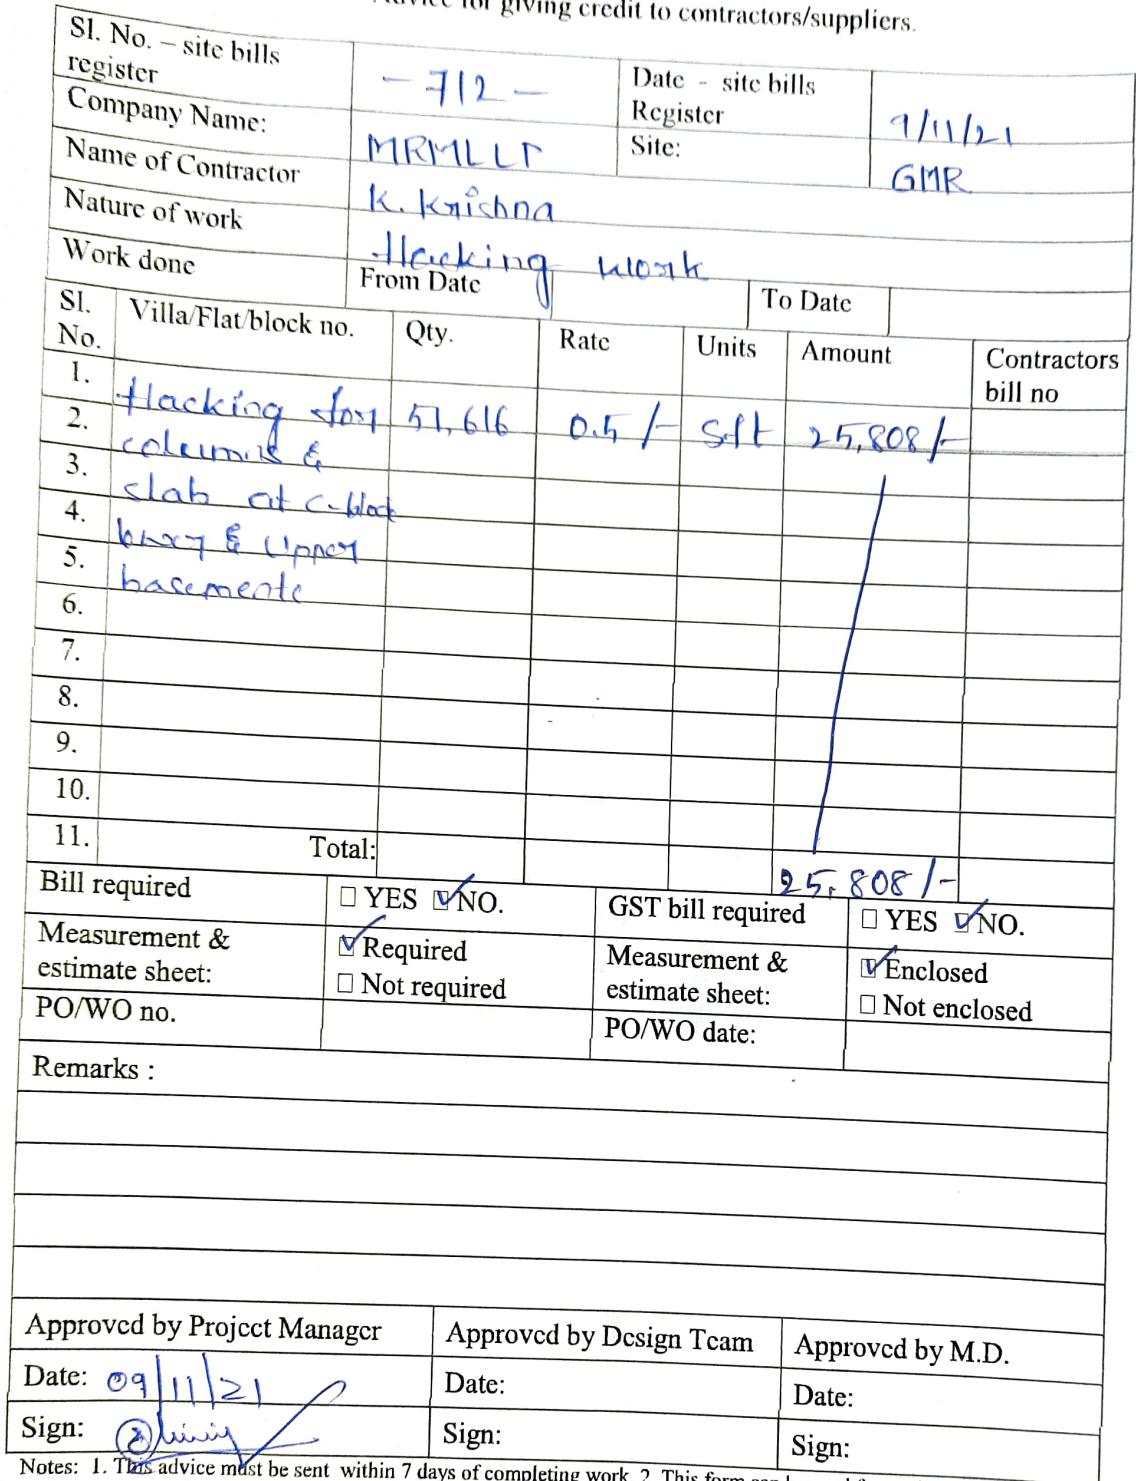 for giving credit to contractors/suppliers.
Sl. No. – site bills register - 712 - Date - site bills Register 9/11/21
Company Name: MRMLLP Site: GMR
Name of Contractor K. Krishna
Nature of work Hacking work
Work done From Date To Date
Sl. No. Villa/Flat/block no. Qty. Rate Units Amount Contractors bill no
1. Hacking for 51,616 0.5/- Sft 25,808/-
2. columns &
3. slab at C-block
4. & Upper
5. basements
6.
7.
8.
9.
10.
11. Total: 25,808/-
Bill required ☐ YES ☑ NO. GST bill required ☐ YES ☑ NO.
Measurement & estimate sheet: ☑ Required ☐ Not required Measurement & estimate sheet: ☑ Enclosed ☐ Not enclosed
PO/WO no. PO/WO date:
Remarks :
Approved by Project Manager Approved by Design Team Approved by M.D.
Date: 09/11/21 Date: Date:
Sign: Sign: Sign:
Notes: 1. This advice must be sent within 7 days of completing work 2. This form